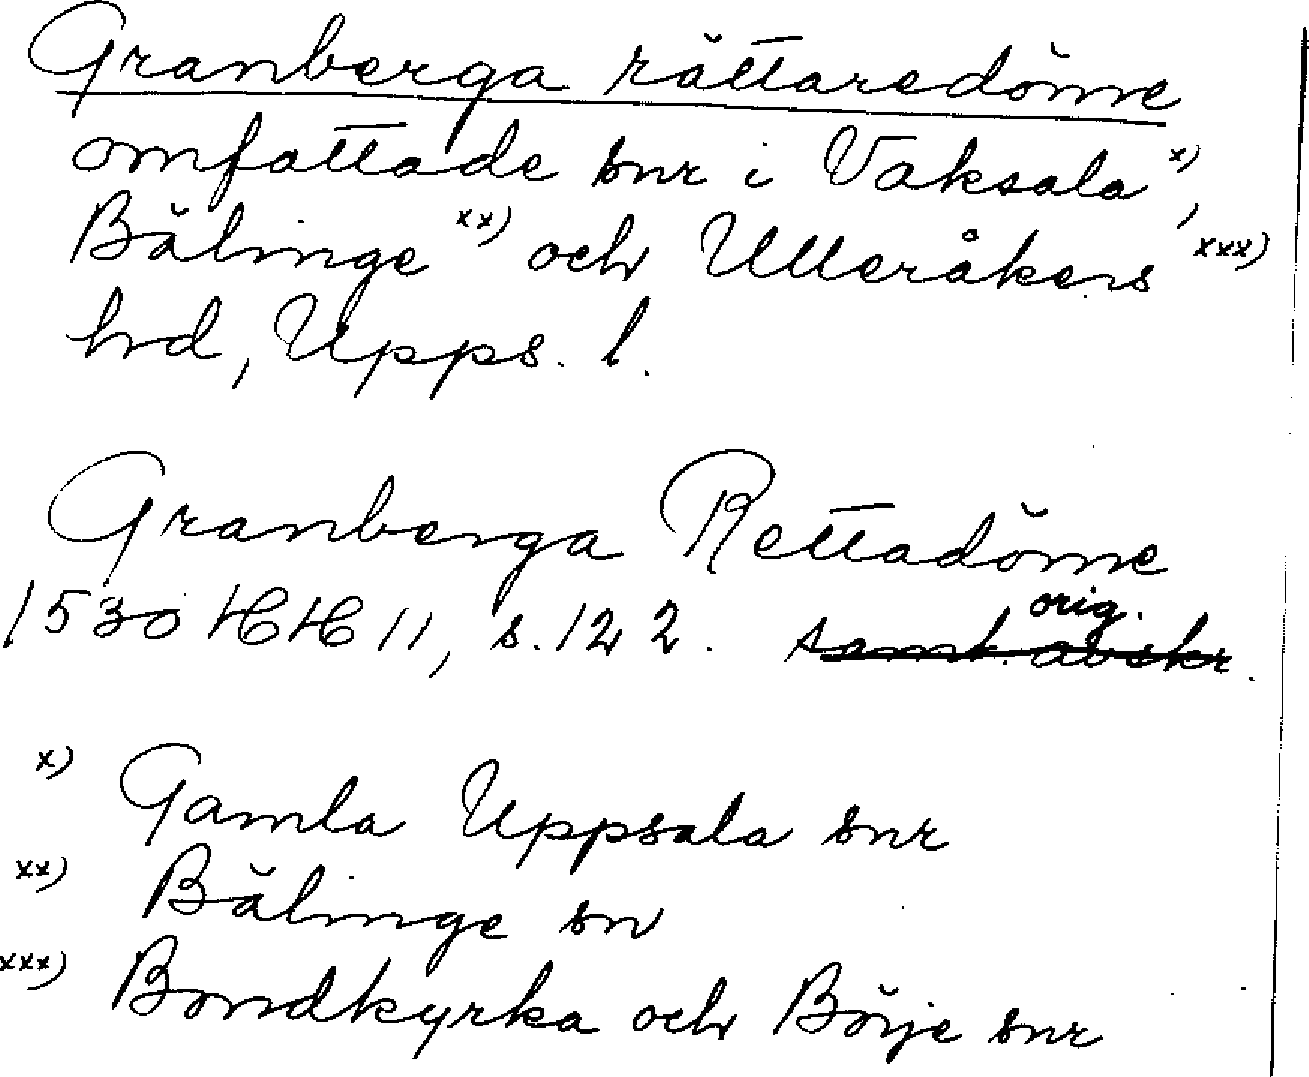 Granberga rättaredöme
omfattade snr i Vaksala x),
Bälinge xx) och Ulleråkers xxx)
hrd, Upps. l.
Granberga Rettadöme
1530 HH 11, s. 122. orig.
samt. avskr.
x) Gamla Uppsala snr
xx) Bälinge sn
xxx) Bondkyrka och Börje snr